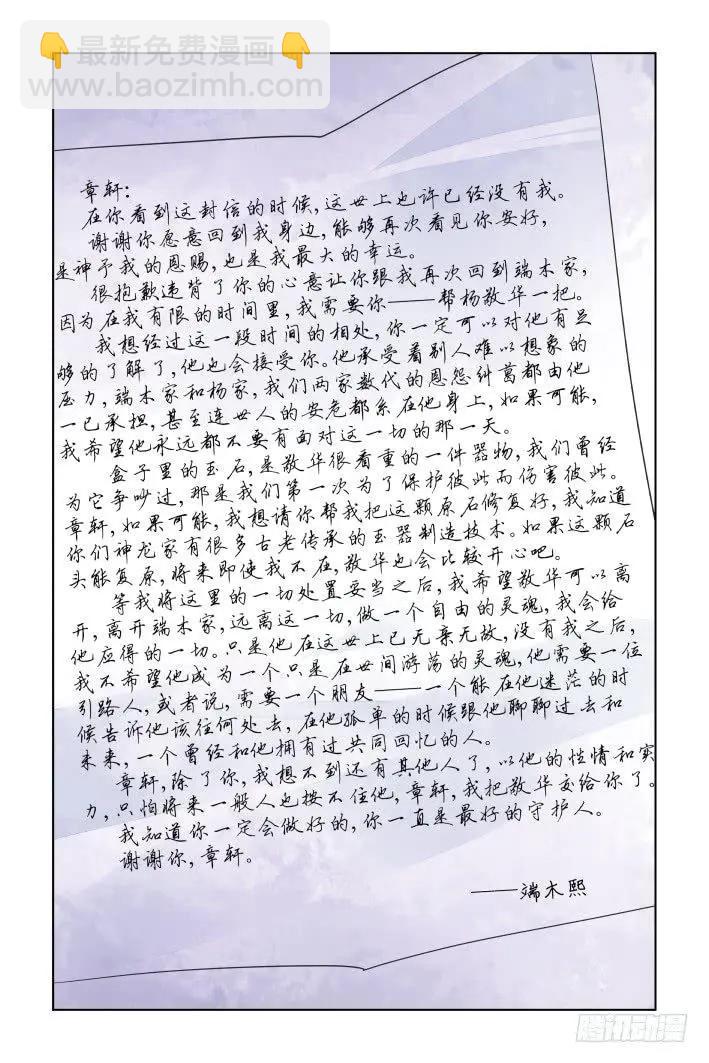 👇最新免费漫画👇
www.baozimh.com
章轩:
在你看到这封信的时候,这世上也许已经没有我。
谢谢你愿意回到我身边,能够再次看见你安好,
是神予我的恩赐,也是我最大的幸运。
很抱歉违背了你的心意让你跟我再次回到端木家,
因为在我有限的时间里,我需要你——帮杨敬华一把。
我想经过这一段时间的相处,你一定可以对他有足
够的了解了,他也会接受你。他承受着别人难以想象的
压力,端木家和杨家,我们两家数代的恩怨纠葛都由他
一己承担,甚至连世人的安危都系在他身上,如果可能,
我希望他永远都不要有面对这一切的那一天。
盒子里的玉石,是敬华很看重的一件器物,我们曾经
为它争吵过,那是我们第一次为了保护彼此而伤害彼此。
章轩,如果可能,我想请你帮我把这颗原石修复好,我知道
你们神龙家有很多古老传承的玉器制造技术。如果这颗石
头能复原,将来即使我不在,敬华也会比较开心吧。
等我将这里的一切处置妥当之后,我希望敬华可以离
开,离开端木家,远离这一切,做一个自由的灵魂,我会给
他应得的一切。只是他在这世上已无亲无故,没有我之后,
我不希望他成为一个只是在世间游荡的灵魂,他需要一位
引路人,或者说,需要一个朋友——一个能在他迷茫的时
候告诉他该往何处去,在他孤单的时候跟他聊聊过去和
未来,一个曾经和他拥有过共同回忆的人。
章轩,除了你,我想不到还有其他人了,以他的性情和实
力,只怕将来一般人也按不住他,章轩,我把敬华交给你了。
我知道你一定会做好的,你一直是最好的守护人。
谢谢你,章轩。
——端木熙
腾讯动漫